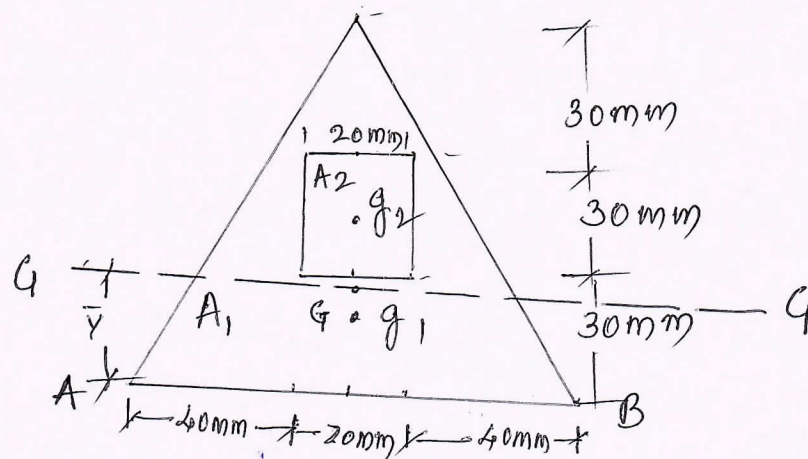 30mm
20mm
A2
g2
30mm
G
G
Y
A1
G
g1
30mm
A
B
40mm
20mm
40mm